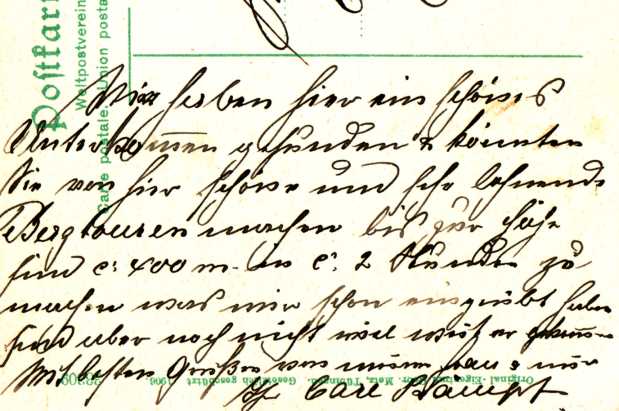 Postkarte
Weltpostverein
Carte postale. Union posta
Wir haben hier ein schönes
Unterkommen gefunden & könnten
Sie von hier schöne und sehr lohnende
Bergtouren machen bis zur Höhe
sind c: 400 m in c: 2 Stunden zu
machen was wir schon ausgeübt haben
sind aber noch nicht viel weiter gekommen
Mit besten Grüßen von meiner Frau & mir
Carl
Original-Eigentum Metz, Tübingen. Gesetzlich geschützt. 1906